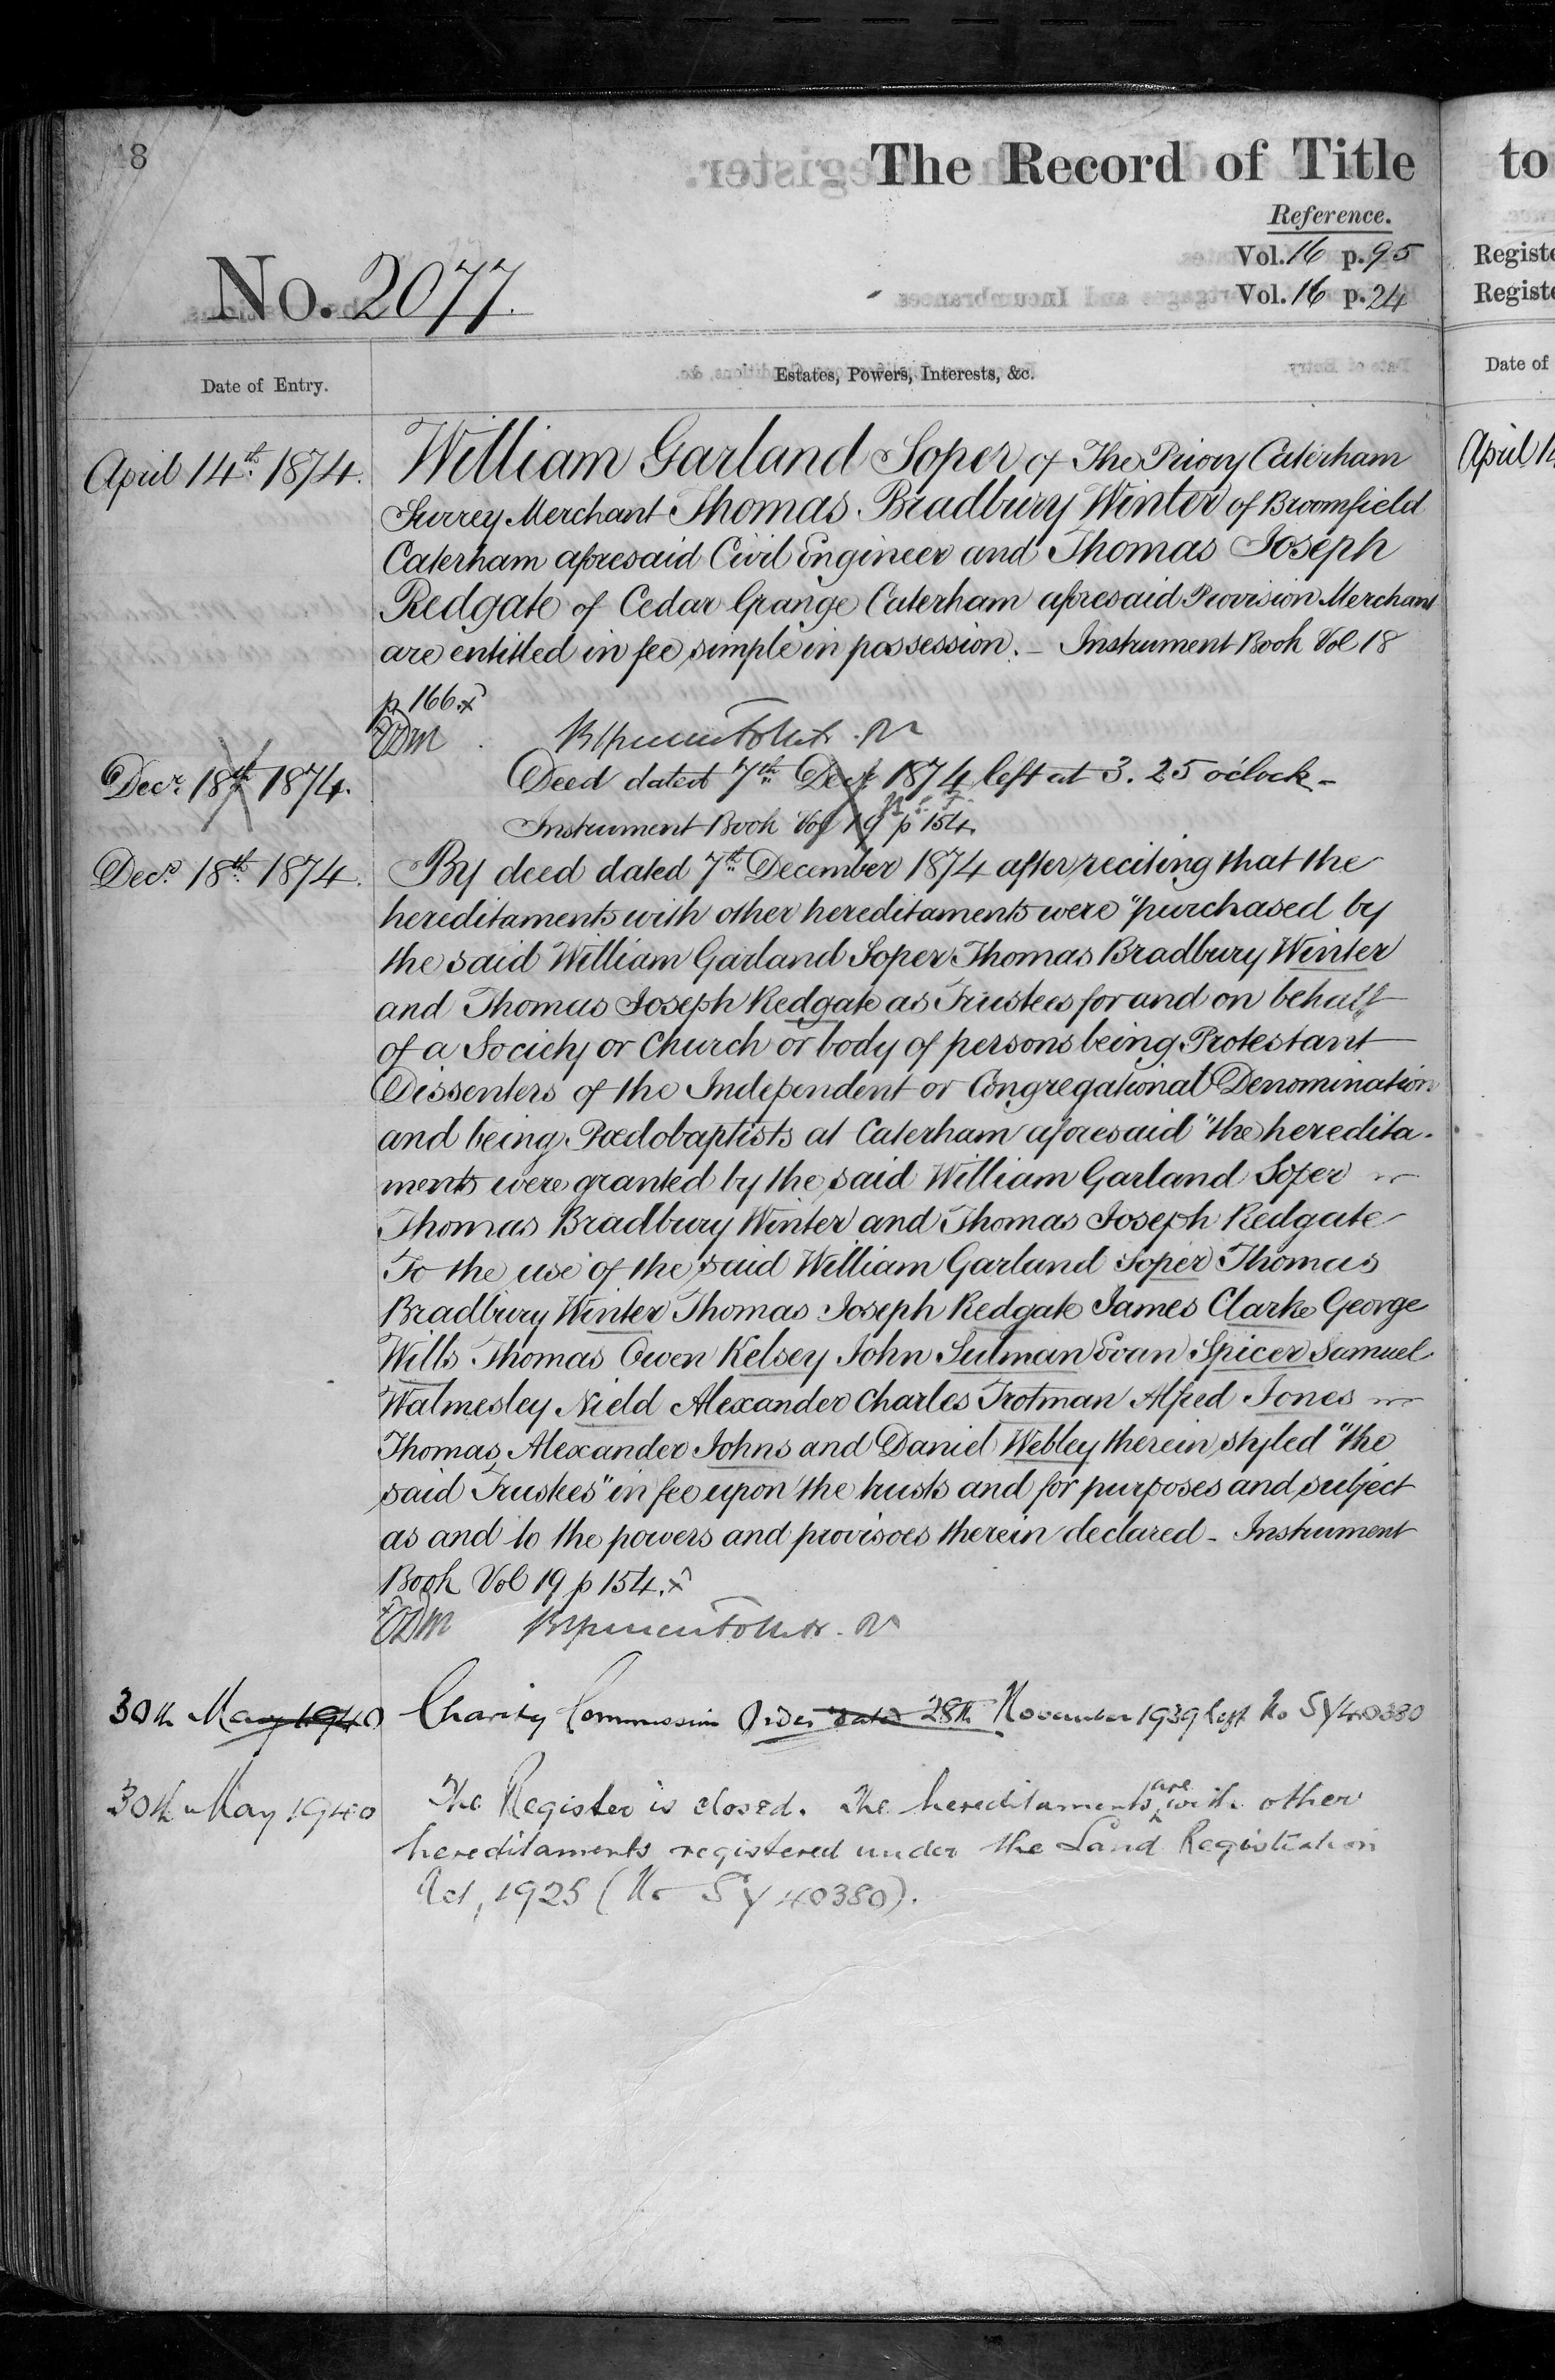 48
The Record of Title
Reference.
No. 2077.
Vol. 16 p. 95
Vol. 16 p. 24
Date of Entry.
Estates, Powers, Interests, &c.
April 14th. 1874.
William Garland Soper of The Priory Caterham
Surrey Merchant Thomas Bradbury Winter of Broomfield
Caterham aforesaid Civil Engineer and Thomas Joseph
Redgate of Cedar Grange Caterham aforesaid Provision Merchant
are entitled in fee simple in possession. - Instrument Book Vol 18
p 166.
Decr. 18th 1874.
Deed dated 7th Decr 1874 left at 3.25 o'clock -
Instrument Book Vol 19 p 154.
Decr. 18th. 1874.
By deed dated 7th December 1874 after reciting that the
hereditaments with other hereditaments were "purchased by
the said William Garland Soper Thomas Bradbury Winter
and Thomas Joseph Redgate as Trustees for and on behalf
of a Society or Church or body of persons being Protestant
Dissenters of the Independent or Congregational Denomination
and being Pœdobaptists at Caterham aforesaid" the heredita-
ments were granted by the said William Garland Soper
Thomas Bradbury Winter and Thomas Joseph Redgate
To the use of the said William Garland Soper Thomas
Bradbury Winter Thomas Joseph Redgate James Clarke George
Wills Thomas Owen Kelsey John Sulman Evan Spicer Samuel
Walmesley Nield Alexander Charles Trotman Alfred Jones
Thomas Alexander Johns and Daniel Webley therein styled "the
said Trustees" in fee upon the trusts and for purposes and subject
as and to the powers and provisoes therein declared - Instrument
Book Vol 19 p 154.
30th May 1940
Charity Commission Order dated 28th November 1939 left No SY40380
30th May 1940
The Register is closed. The hereditaments are with other
hereditaments registered under the Land Registration
Act, 1925 (No SY 40380).
to
Registe
Registe
Date of
April 14